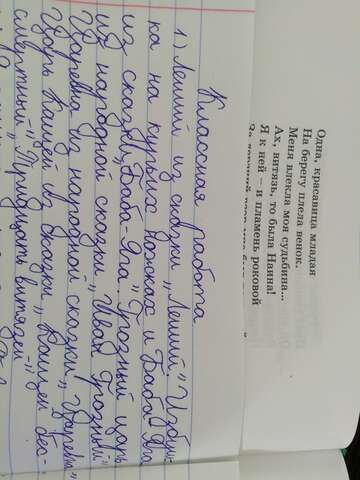 Одна, красавица младая
На берегу плела венок.
Меня влекла моя судьбина...
Ах, витязь, то была Наина!
Я к ней – и пламень роковой
Классная работа
1) Леший из сказки „Леший" Избуш-
ка на курьих ножках и Баба-Яга
из сказки „Баба-Яга" Грозный царь
из народной сказки „Иван Грозный"
Царевна из народной сказки „Царевна"
Царь Кащей из сказки „Кащей бес-
смертный" „Тридцать витязей-"